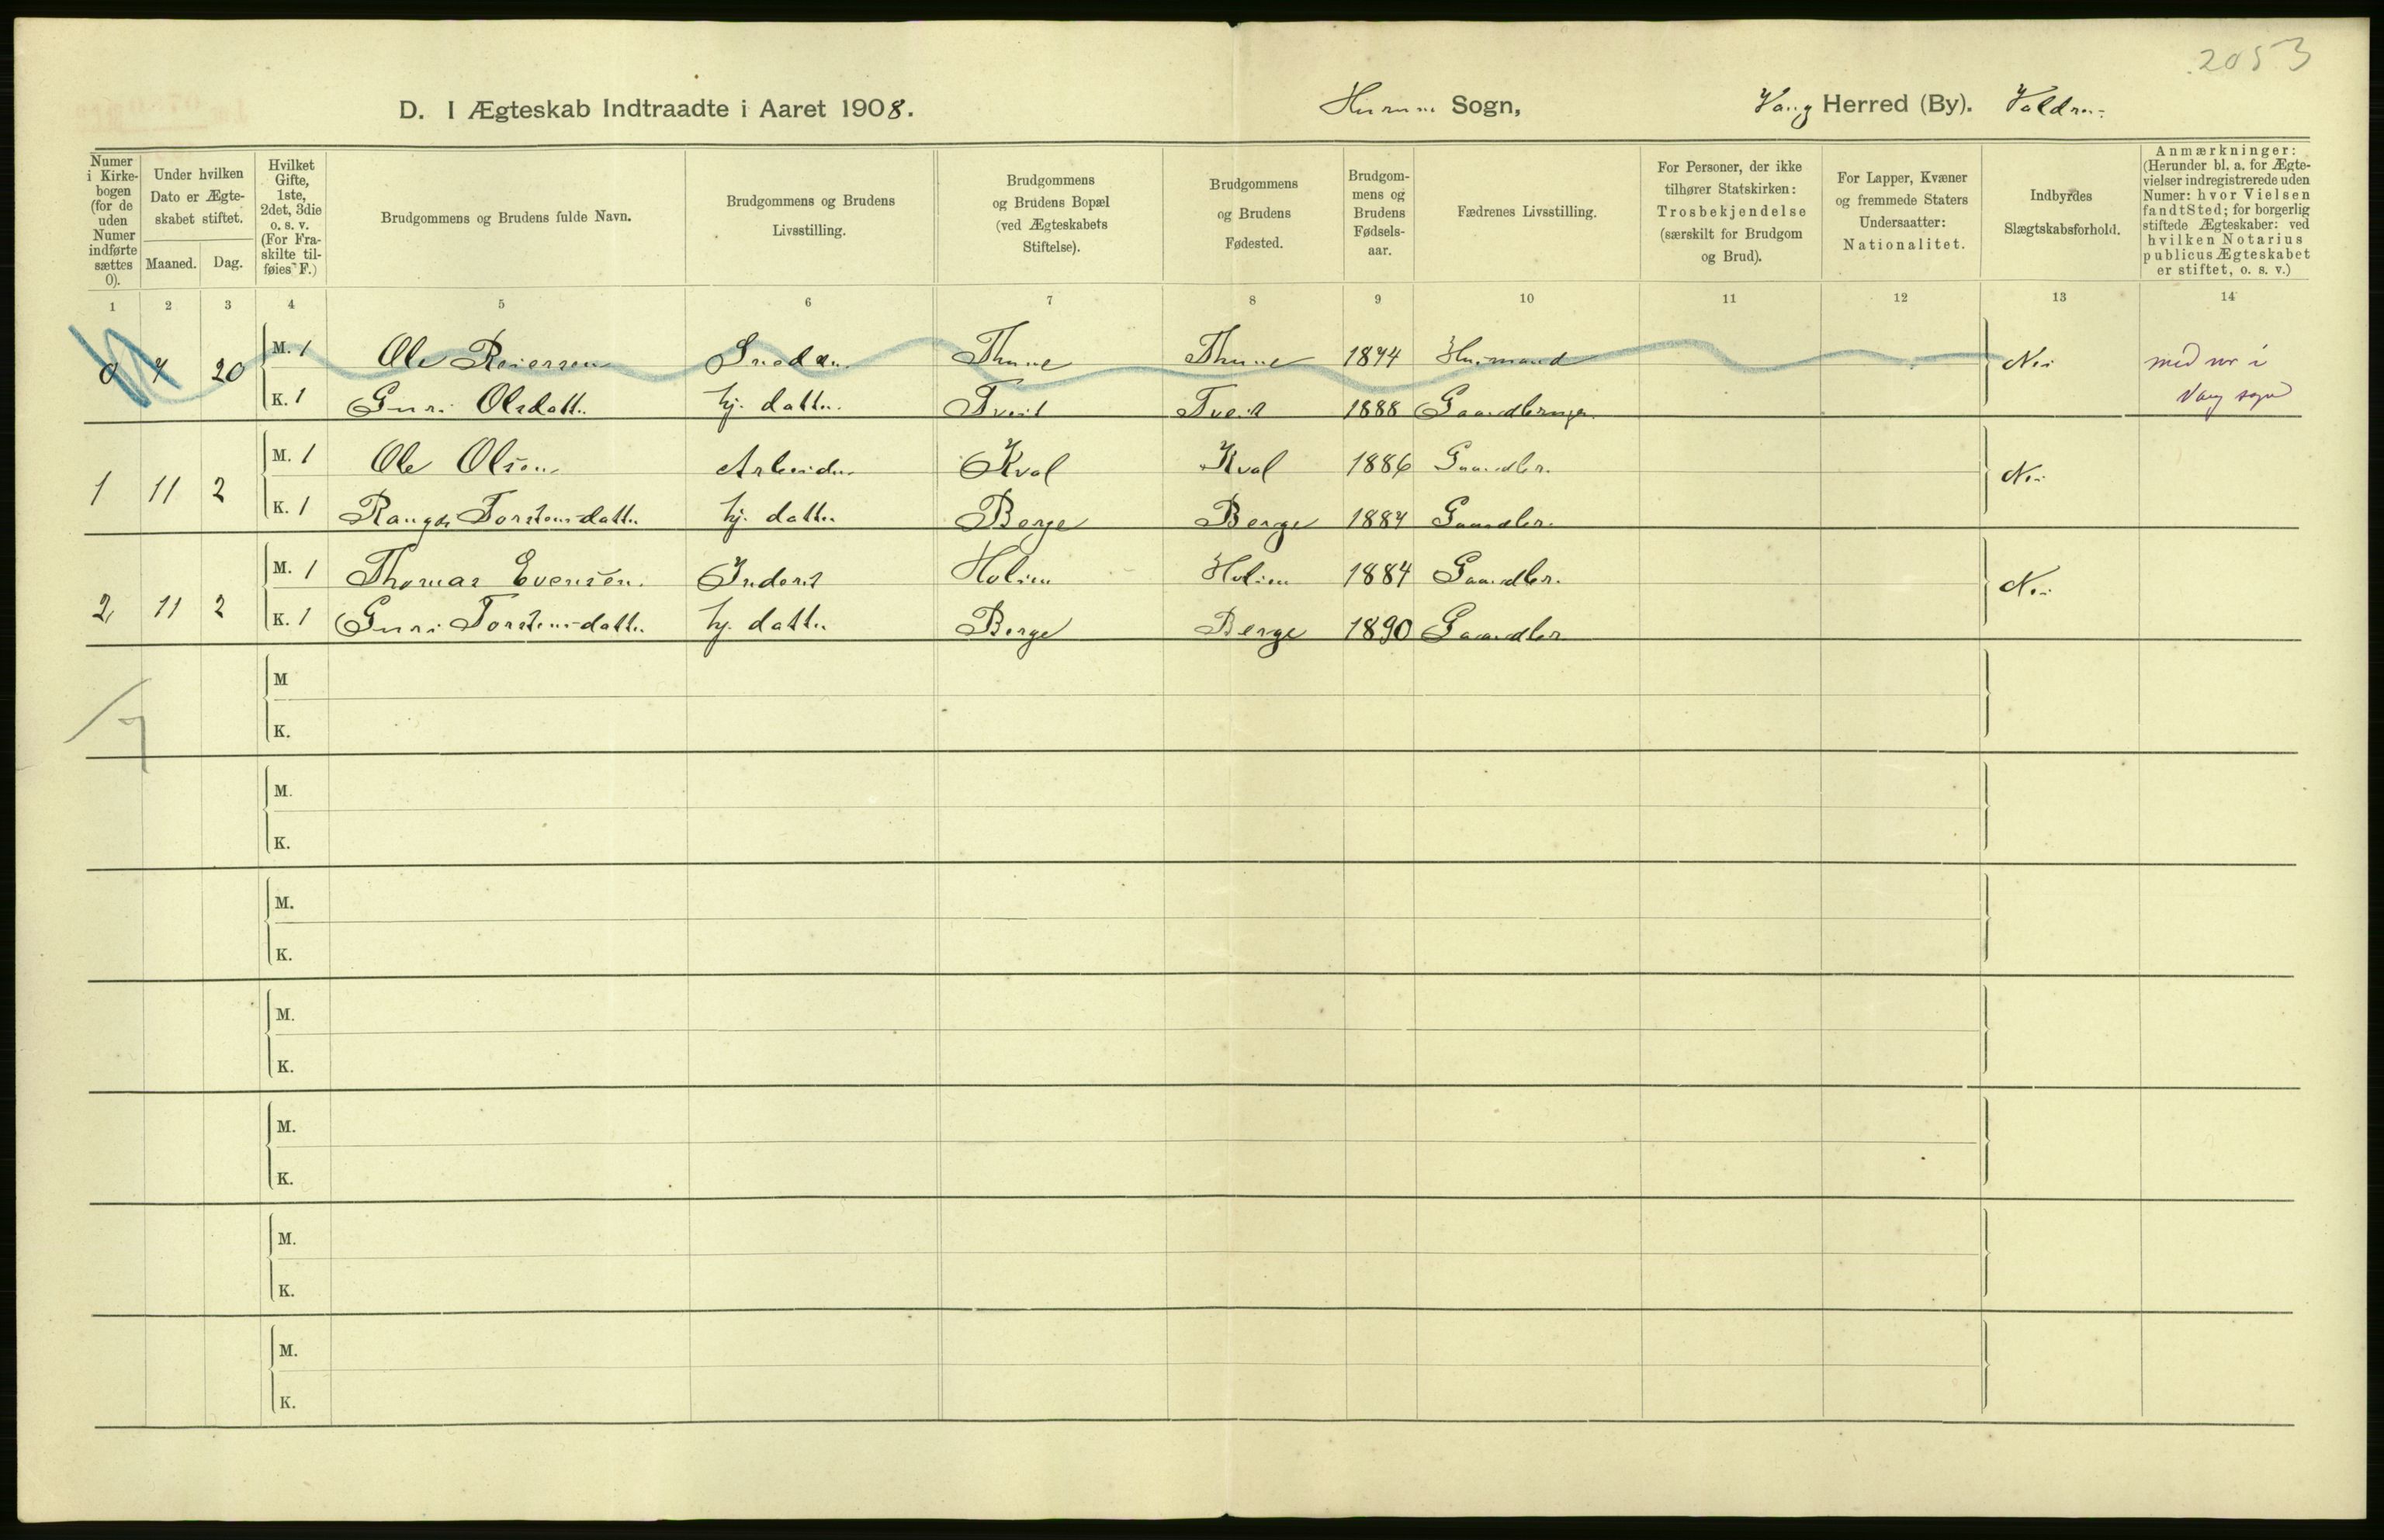 2053
D. I Ægteskab Indtraadte i Aaret 1908.
Hurum Sogn,
Vang Herred (By). Valdres.
Numer i Kirkebogen (for de uden Numer indførte sættes 0).
Under hvilken Dato er Ægteskabet stiftet.
Maaned. Dag.
Hvilket Gifte, 1ste, 2det, 3die o. s. v. (For Fraskilte tilføies F.)
Brudgommens og Brudens fulde Navn.
Brudgommens og Brudens Livsstilling.
Brudgommens og Brudens Bopæl (ved Ægteskabets Stiftelse).
Brudgommens og Brudens Fødested.
Brudgommens og Brudens Fødselsaar.
Fædrenes Livsstilling.
For Personer, der ikke tilhører Statskirken: Trosbekjendelse (særskilt for Brudgom og Brud).
For Lapper, Kvæner og fremmede Staters Undersaatter: Nationalitet.
Indbyrdes Slægtskabsforhold.
Anmærkninger: (Herunder bl. a. for Ægtevielser indregistrerede uden Numer: hvor Vielsen fandt Sted; for borgerlig stiftede Ægteskaber: ved hvilken Notarius publicus Ægteskabet er stiftet, o. s. v.)
1 2 3 4 5 6 7 8 9 10 11 12 13 14
M. 1 Ole Reiersen Snedker Thune Thune 1874 Husmand
0 7 20 Nei med nr i
K. 1 Guri Olsdatt. hj. datter. Tveit Tveit 1888 Gaardbruger. Vang sogn
M. 1 Ole Olsen Arbeider Kval Kval 1886 Gaardbr.
1 11 2 Nei
K. 1 Rangdi Torstensdatter hj. datter Berge Berge 1884 Gaardbr.
M. 1 Thomas Evensen. Inderst Holien Holien 1884 Gaardbr.
2 11 2 Nei
K. 1 Guri Torstensdatter hj. datter Berge Berge 1890 Gaardbr
M
K.
M.
K.
M.
K.
M.
K.
M.
K.
M.
K.
M.
K.